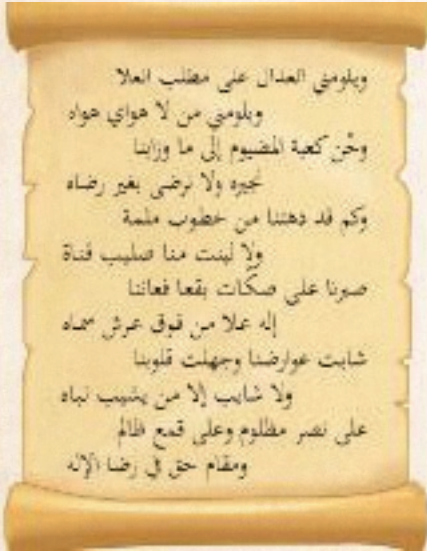 ويلومني العذال على مطلب العلا
ويلومني من لا هواي هواه
وحْن كعبة المضيوم إلى ما وزابنا
نجيره ولا نرضى بغير رضاه
وكم قد دهتنا من خطوب ملمة
ولا لينت منا صليب قناة
صبرنا على صكّات بقعا فعاننا
إله علا من فوق عرش سماه
شابت عوارضنا وجهلت قلوبنا
ولا شايب إلا من يشيب نباه
على نصر مظلوم وعلى قمع ظالم
ومقام حق في رضا الإله